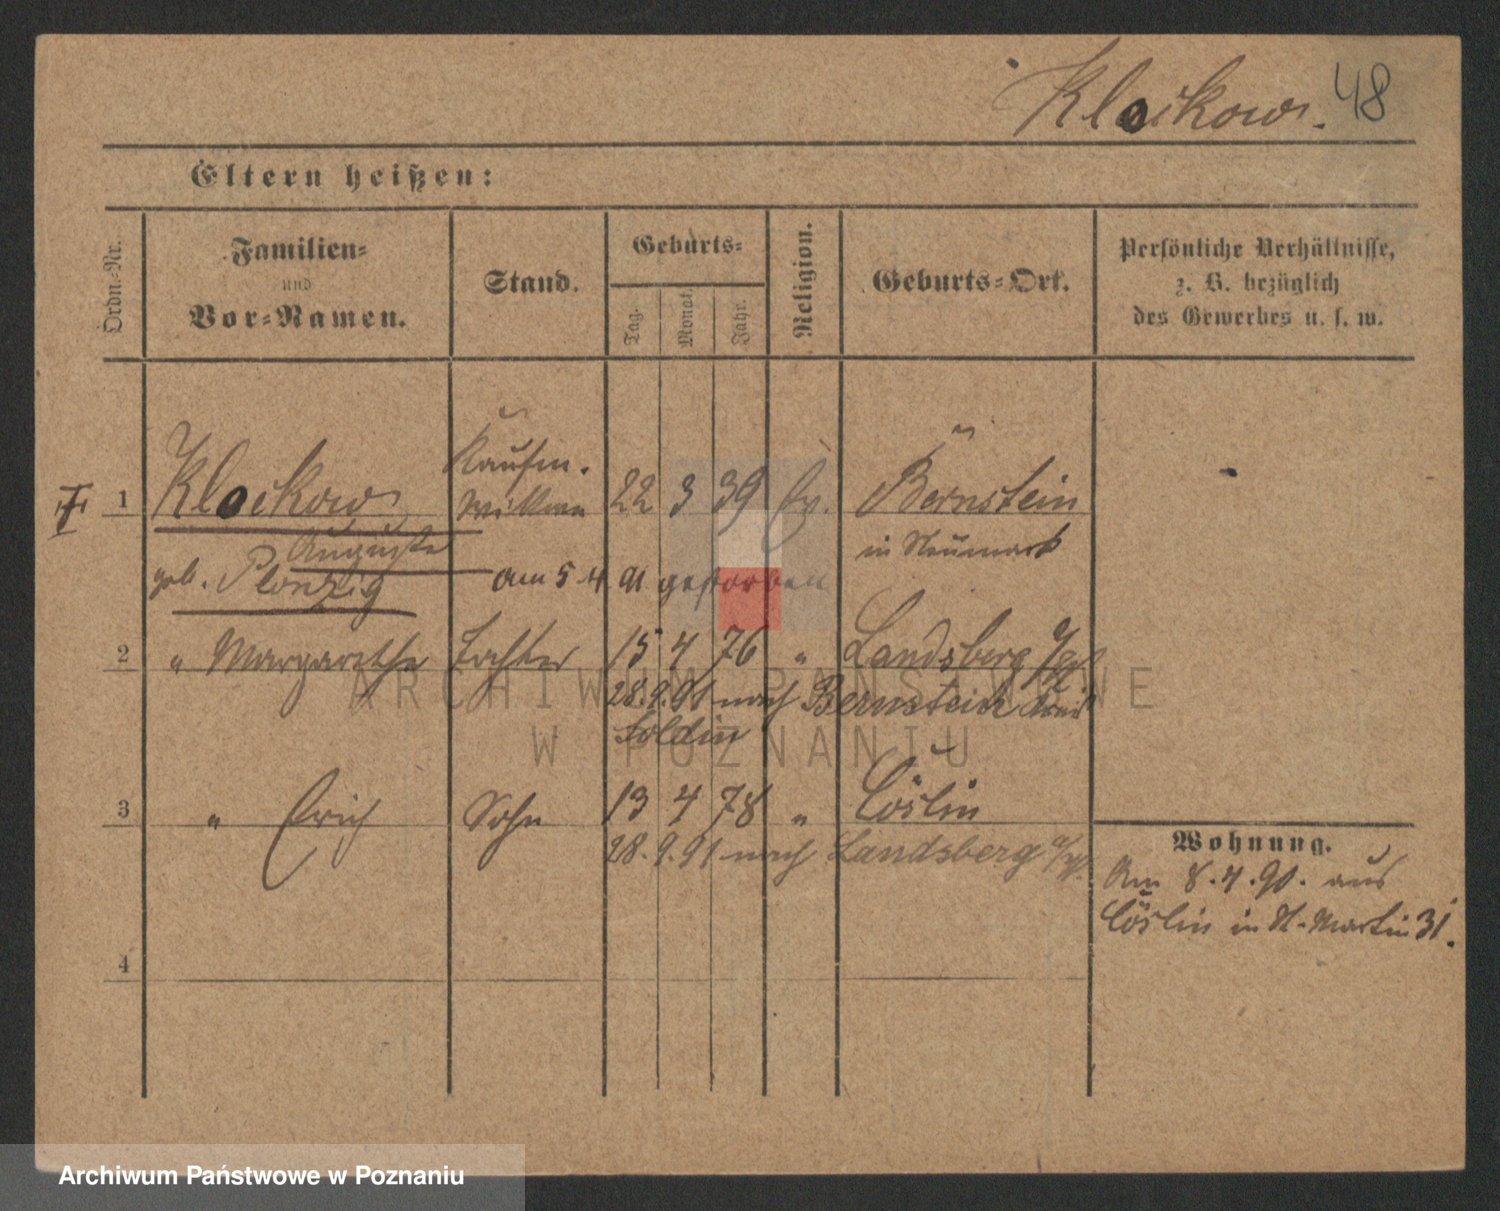 Klockow. 48
Eltern heißen:
Ordn.-Nr.
Familien-
und
Vor-Namen.
Stand.
Geburts-
Tag.
Monat.
Jahr.
Religion.
Geburts-Ort.
Persönliche Verhältnisse,
z. B. bezüglich
des Gewerbes u. s. w.
Kaufm.
† 1 Klockow Wittwe 22 3 39 Ev. Bernstein
Auguste in Neumark
geb. Plonzig am 5.4.91 gestorben
2 " Margarethe Tochter 15 4 76 " Landsberg a/W.
28.9.91 nach Bernstein Kreis
Soldin
3 " Erich Sohn 13 4 78 " Cöslin
28.9.91 nach Landsberg a/W.
Wohnung.
Am 8.4.90. aus
Cöslin in St. Martin 31.
4
ARCHIWUM PAŃSTWOWE
W POZNANIU
Archiwum Państwowe w Poznaniu